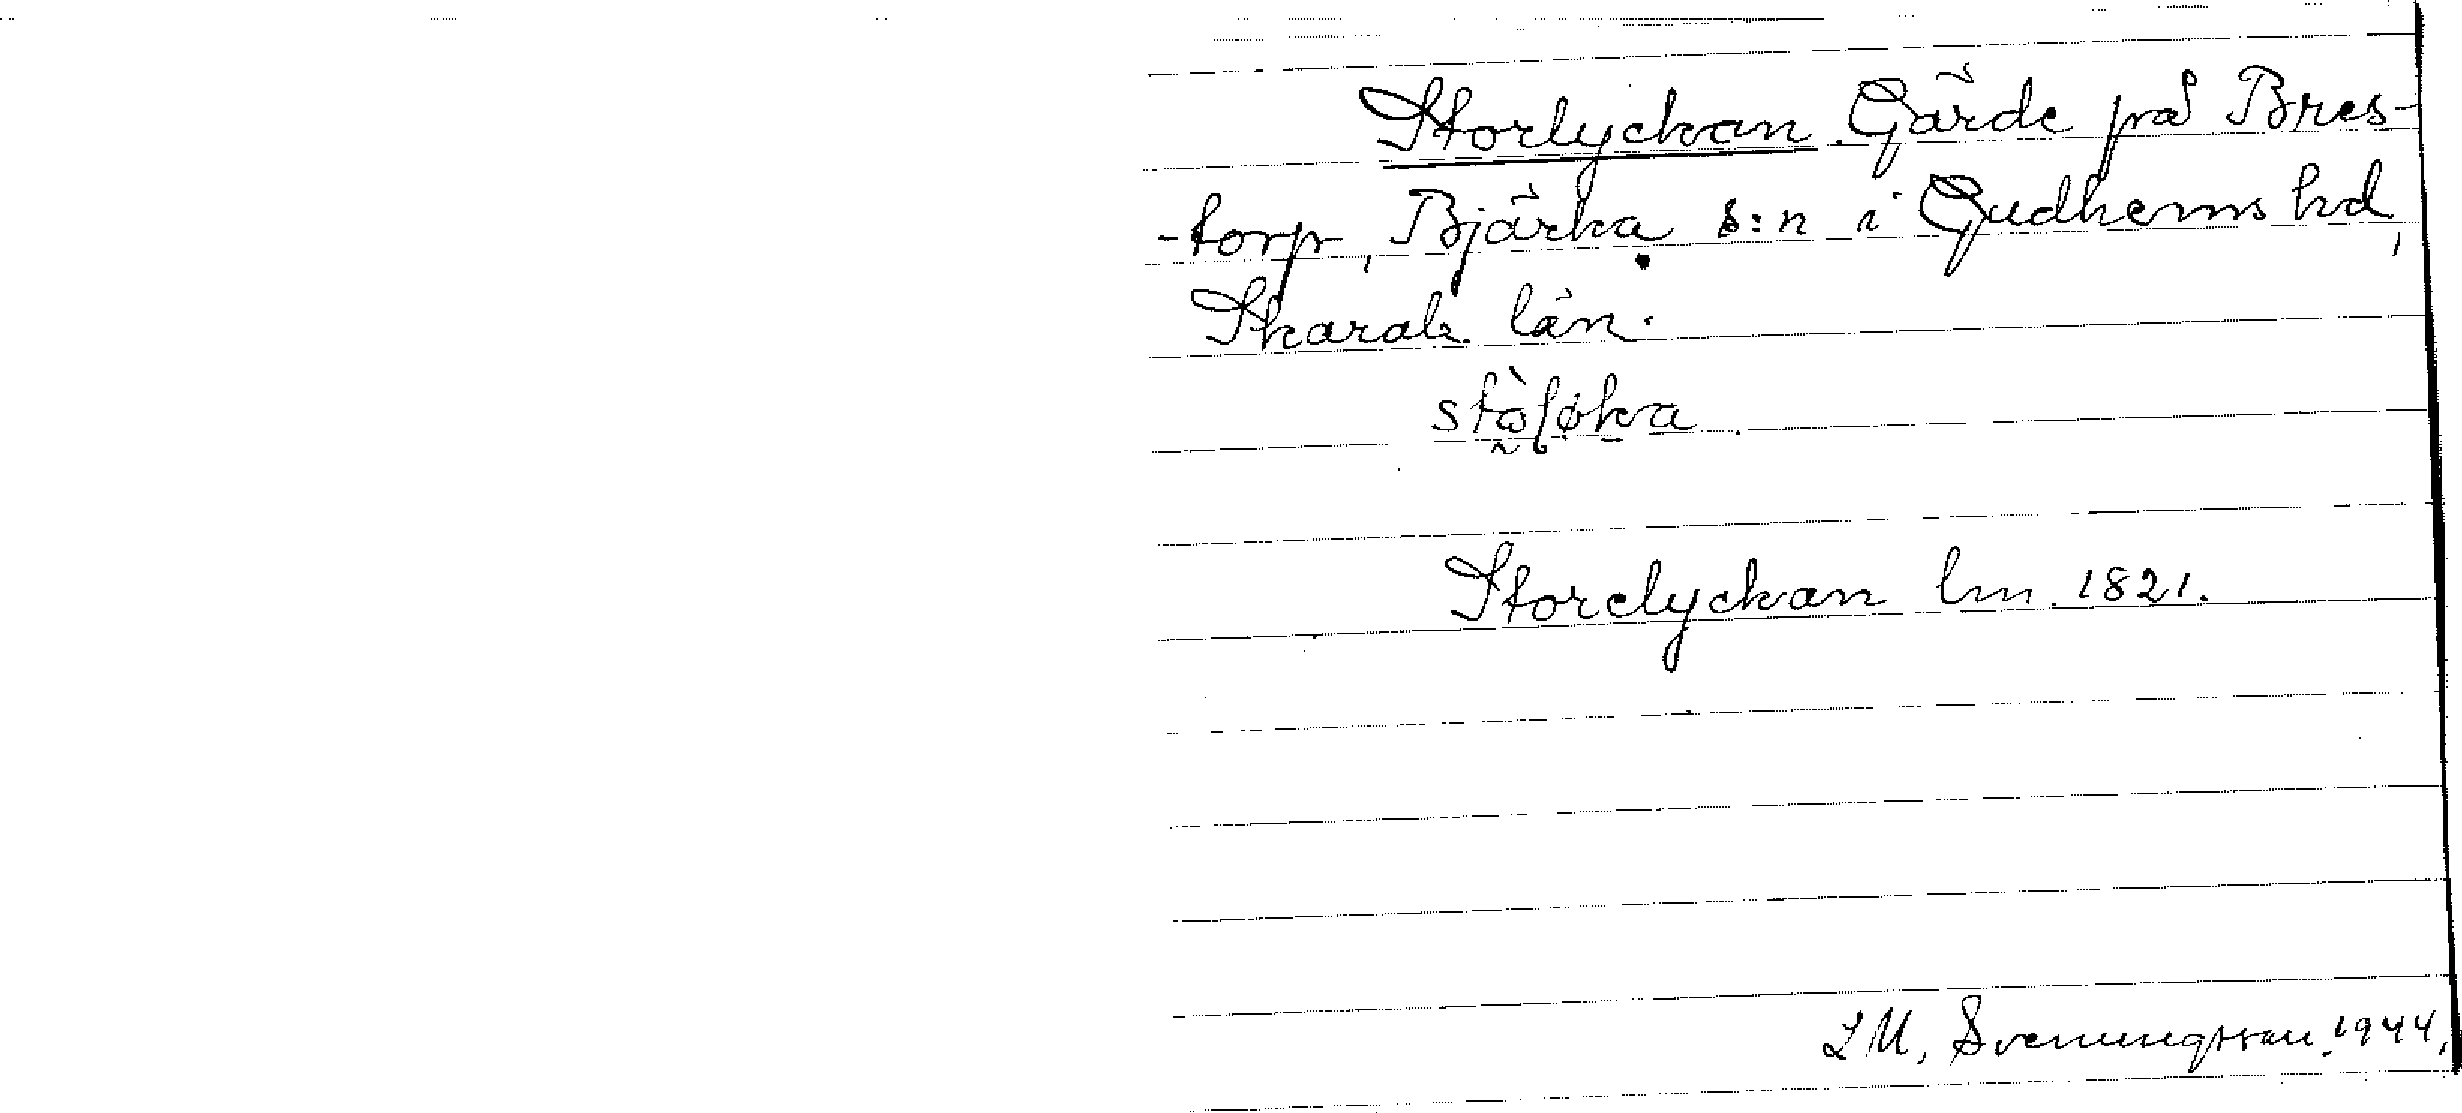 Storlyckan Gärde på Bres-
-torp, Bjärka s:n i Gudhems hd,
Skarab. län.
stò̰ɭøka
Storelyckan lm 1821.
L M, Svenungsson 1944,